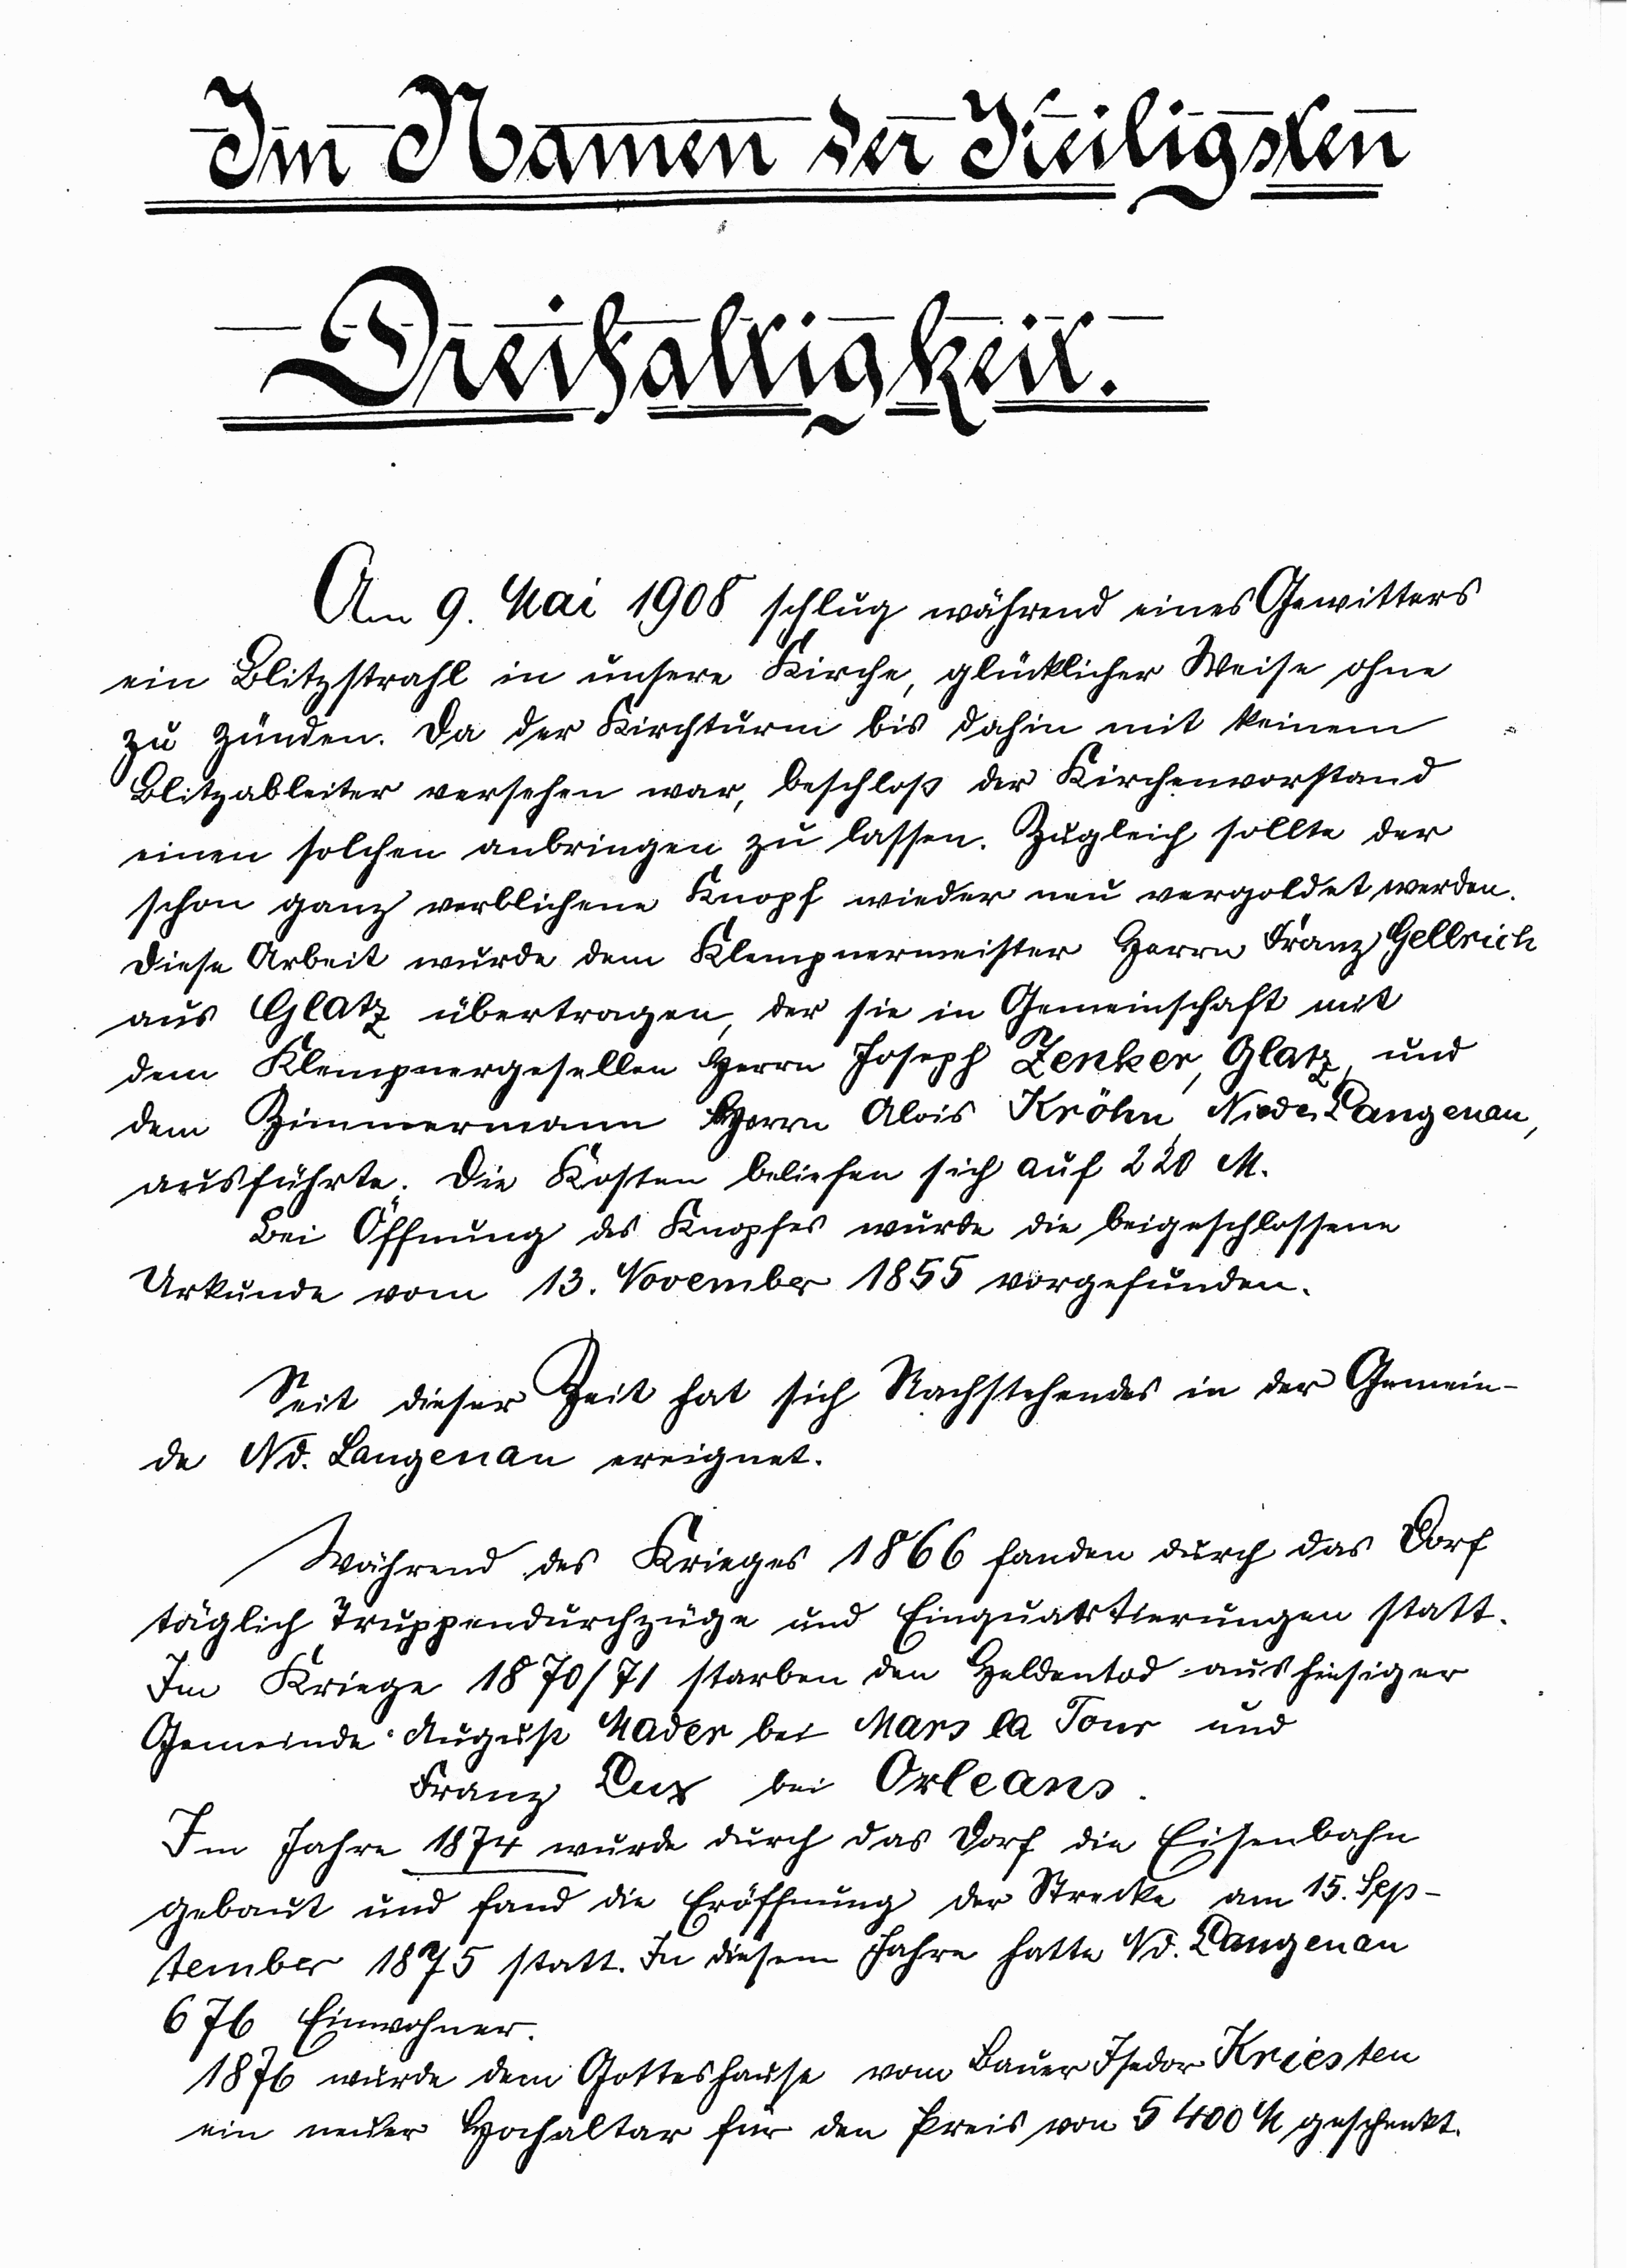 Im Namen der Heiligsten
Dreifaltigkeit.
Am 9. Mai 1908 schlug während eines Gewitters
ein Blitzstrahl in unsere Kirche, glücklicher Weise ohne
zu zünden. Da der Kirchturm bis dahin mit keinem
Blitzableiter versehen war, beschloß der Kirchenvorstand
einen solchen anbringen zu lassen. Zugleich sollte der
schon ganz verblichene Knopf wieder neu vergoldet werden.
Diese Arbeit wurde dem Klempnermeister Herrn Franz Gellrich
aus Glatz übertragen, der sie in Gemeinschaft mit
dem Klempnergesellen Herrn Joseph Zenker, Glatz, und
dem Zimmermann Herrn Alois Kröhn, Nieder Langenau,
ausführte. Die Kosten beliefen sich auf 220 M.
Bei Öffnung des Knopfes wurde die beigeschlossene
Urkunde vom 13. November 1855 vorgefunden.
Seit dieser Zeit hat sich Nachstehendes in der Gemein-
de Nd. Langenau ereignet.
Während des Krieges 1866 fanden durch das Dorf
täglich Truppendurchzüge und Einquartierungen statt.
Im Kriege 1870/71 starben den Heldentod aus hiesiger
Gemeinde: August Mader bei Mars la Tour und
Franz Lux bei Orleans.
Im Jahre 1874 wurde durch das Dorf die Eisenbahn
gebaut und fand die Eröffnung der Strecke am 15. Sep-
tember 1875 statt. In diesem Jahre hatte Nd. Langenau
676 Einwohner.
1876 wurde dem Gotteshause vom Bauer Isedor Kriesten
ein neuer Hochaltar für den Preis von 5400 M geschenkt.